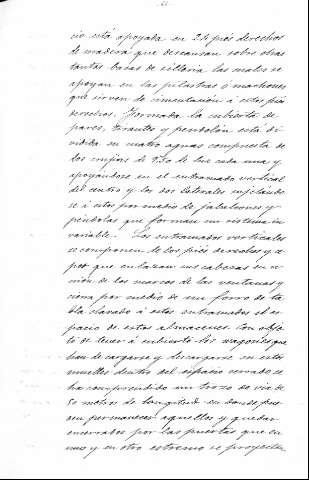 cio está apoyada en 24 piés derechos
de madera que descansan sobre otras
tantas basas de sillería las cuales se
apoyan en las pilastras ó machones
que sirven de cimentación á estos piés
derechos. Formada la cubierta de
pares, tirantes y pendolón está di-
vidida en cuatro aguas compuesta de
dos crujías de 9,20 de luz cada una y
apoyándose en el entramado vertical
del centro y los dos laterales sujetándo-
se á estos por medio de jabalcones y
péndolas que forman un sistema in-
variable. Los entramados verticales
se componen de los piés derechos y
que enlazan sus cabezas en
unión de los marcos de las ventanas y
cierra por medio de un forro de ta-
bla clavado á estos entramados el es-
pacio de estos almacenes. Con obje-
to de tener á cubierto los wagones que
han de cargarse y descargarse en estos
muelles dentro del espacio cerrado se
ha comprendido un trozo de vía de
50 metros de longitud en donde pue-
den permanecer aquellos y quedar
encerrados por las puertas que en
uno y en otro extremo se proyectan